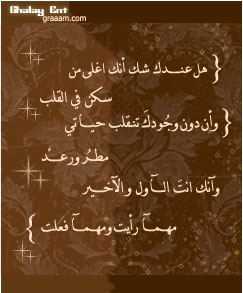 Ghalay Ent
graaam.com
} هل عندك شك أنك اغلى من
سكن في القلب
} وأن دون وجودك تنقلب حياتي
مطر ورعد
وآنك انت الآول والآخير
مهمآ رأيت ومهمآ فعلت {